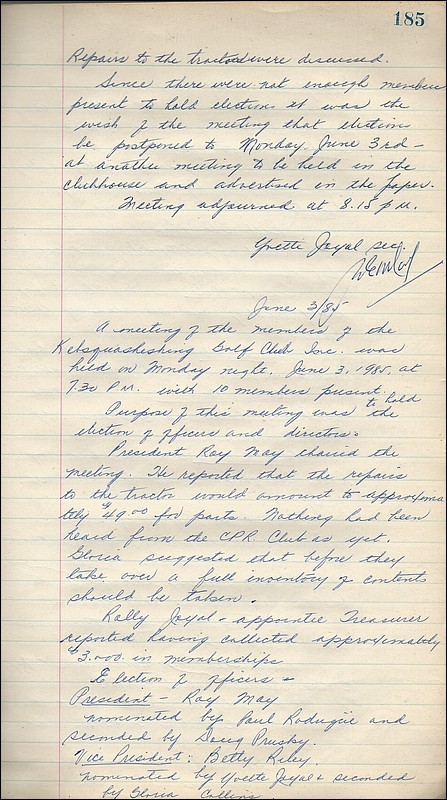 185
Repairs to the tractor were discussed.
Since there were not enough members
present to hold elections it was the
wish of the meeting that elections
be postponed to Monday, June 3rd -
at another meeting to be held in the
clubhouse and advertised in the paper.
Meeting adjourned at 8.15 p.m.
Yvette Joyal sec.
June 3/85
A meeting of the members of the
Kebsquasheshing Golf Club Inc. was
held on Monday night, June 3, 1985, at
7.30 P.M. with 10 members present.
Purpose of this meeting was to hold the
election of officers and directors.
President Ray May chaired the
meeting. He reported that the repairs
to the tractor would amount to approxima
tely $49.00 for parts. Nothing had been
heard from the CPR Club as yet.
Gloria suggested that before they
take over a full inventory of contents
should be taken.
Rolly Joyal - appointee Treasurer
reported having collected approximately
$3.000. in memberships
Election of officers -
President - Ray May
nominated by Paul Rodrigüe and
seconded by Doug Prusky.
Vice President: Betty Riley.
nominated by Yvette Joyal & seconded
by Gloria Collins